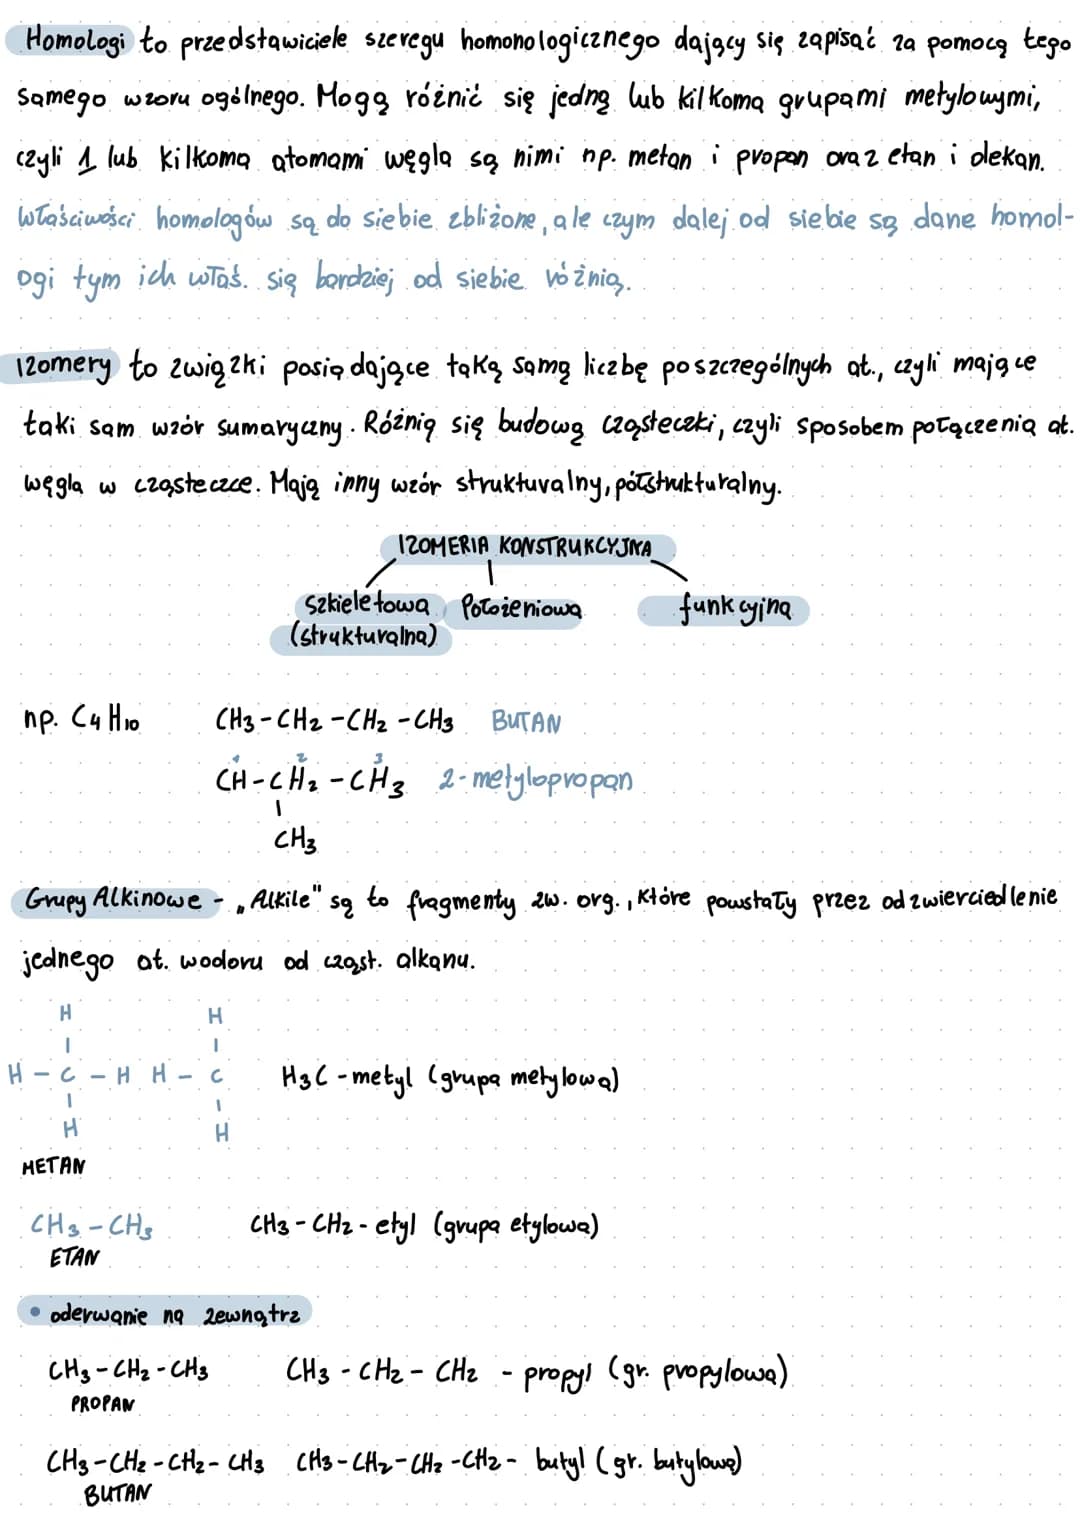 Homologi to przedstawiciele szeregu homonologicznego dający się zapisać za pomocą tego
samego wzoru ogólnego. Mogą różnić się jedną lub kilkoma grupami metylowymi,
czyli 1 lub kilkoma atomami węgla są nimi np. metan i propan oraz etan i dekan.
Właściwości homologów są do siebie zbliżone, ale czym dalej od siebie są dane homol-
ogi tym ich właś. się bardziej od siebie różnią.
Izomery to związki posiądające taką samą liczbę poszczególnych at., czyli mające
taki sam wzór sumaryczny. Różnią się budową cząsteczki, czyli sposobem połączenia at.
węgla w cząsteczce. Mają inny wzór strukturalny, półstrukturalny.
IZOMERIA KONSTRUKCYJNA
Szkieletowa Położeniowa funkcyjna
(strukturalna)
np. C4H10 CH3-CH2-CH2-CH3 BUTAN
1 2 3
CH-CH2-CH3 2-metylopropan
CH3
Grupy Alkinowe - „Alkile" są to fragmenty zw. org., które powstały przez odzwierciedlenie
jednego at. wodoru od cząst. alkanu.
H H
H-C-H H-C H3C-metyl (grupa metylowa)
H H
METAN
CH3-CH3 CH3-CH2-etyl (grupa etylowa)
ETAN
• oderwanie na zewnątrz
CH3-CH2-CH3 CH3-CH2-CH2 - propyl (gr. propylowa)
PROPAN
CH3-CH2-CH2-CH3 CH3-CH2-CH2-CH2- butyl (gr. butylowa)
BUTAN